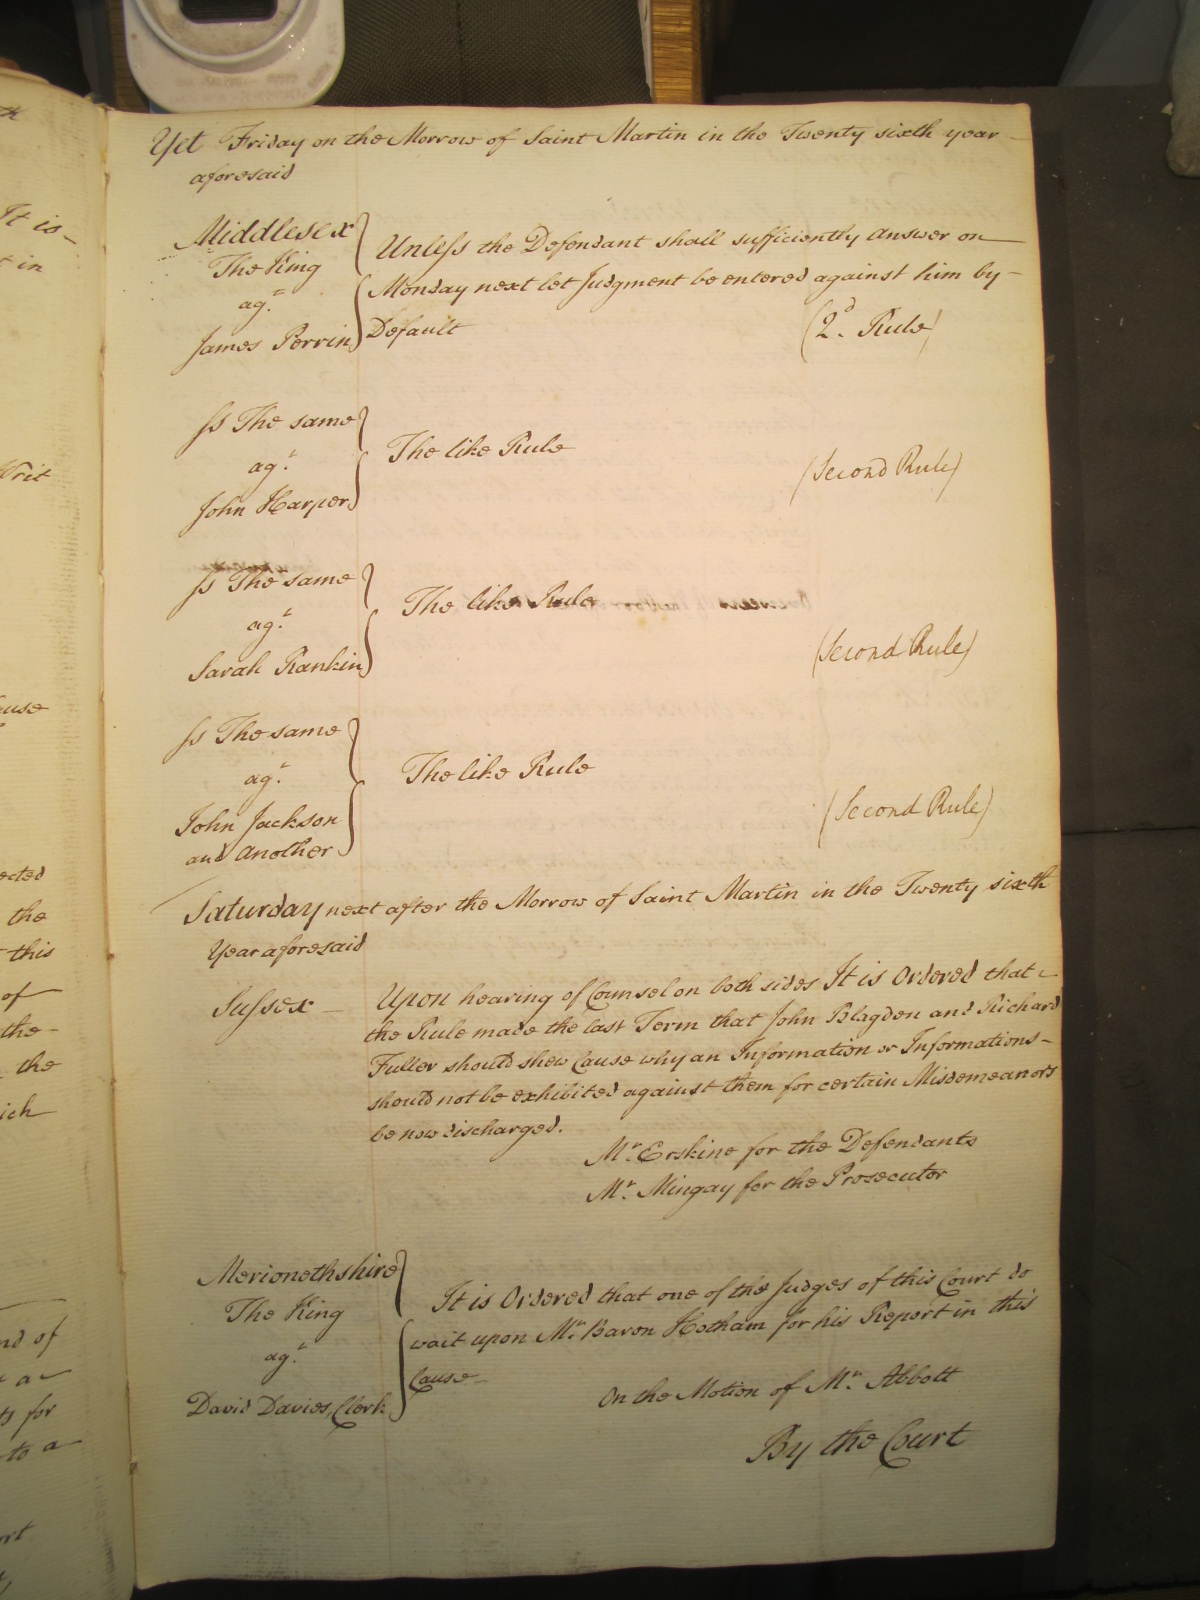 Yet Friday on the Morrow of Saint Martin in the Twenty sixth year
aforesaid
Middlesex
The King
agt.
James Perrin
Unless the Defendant shall sufficiently answer on
Monday next let Judgment be entered against him by
Default
(2d. Rule)
Ss The same
agt.
John Harper
The like Rule
(Second Rule)
Ss The same
agt.
Sarah Rankin
The like Rule
(Second Rule)
Ss The same
agt.
John Jackson
and another
The like Rule
(Second Rule)
Saturday next after the Morrow of Saint Martin in the Twenty sixth
Year aforesaid
Sussex
Upon hearing of Counsel on both sides It is Ordered that
the Rule made the last Term that John Blagden and Richard
Fuller should shew Cause why an Information or Informations
should not be exhibited against them for certain Misdemeanors
be now discharged.
Mr. Erskine for the Defendants
Mr. Mingay for the Prosecutor
Merionethshire
The King
agt.
David Davies, Clerk
It is Ordered that one of the Judges of this Court do
wait upon Mr. Baron Hotham for his Report in this
Cause
On the Motion of Mr. Abbott
By the Court
It is
t in
Writ
ause
ected
the
this
of
the
the
ich
nd of
ts for
to a